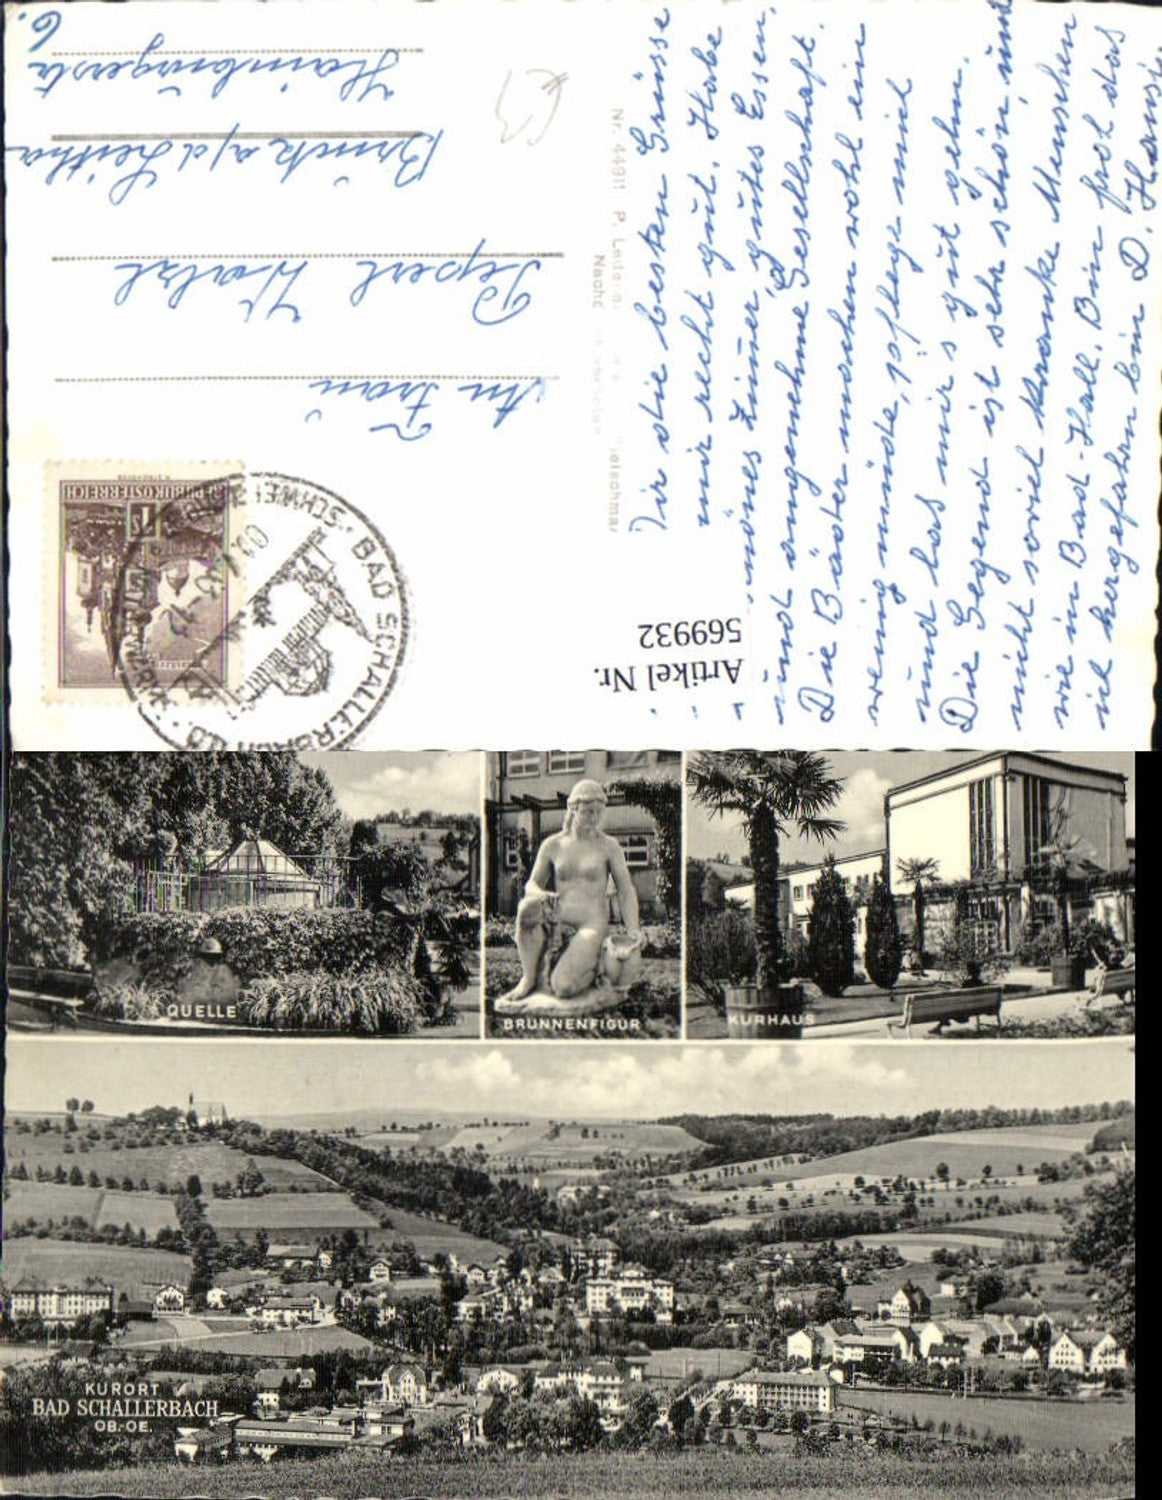 Dir die besten Grüsse
mir recht gut. Habe
schönes Zimmer, gutes Essen,
und angenehme Gesellschaft.
Die Bäder machen wohl ein
wenig müde, pflege mich
und lass mir's gut gehn.
Die Gegend ist sehr schön, und
nicht soviel kranke Menschen
wie in Bad-Hall. Bin froh das
ich hergefahrn bin D. Hansi.
Nr. 44911 P. Ledermann
An Frau
Pepperl
Bruck a/d Leitha
Hainburgerstr. 6.
REPUBLIK ÖSTERREICH
1S
BAD SCHALLERBACH O.Ö.
Artikel Nr.
569932
QUELLE
BRUNNENFIGUR
KURHAUS
KURORT
BAD SCHALLERBACH
OB.-OE.